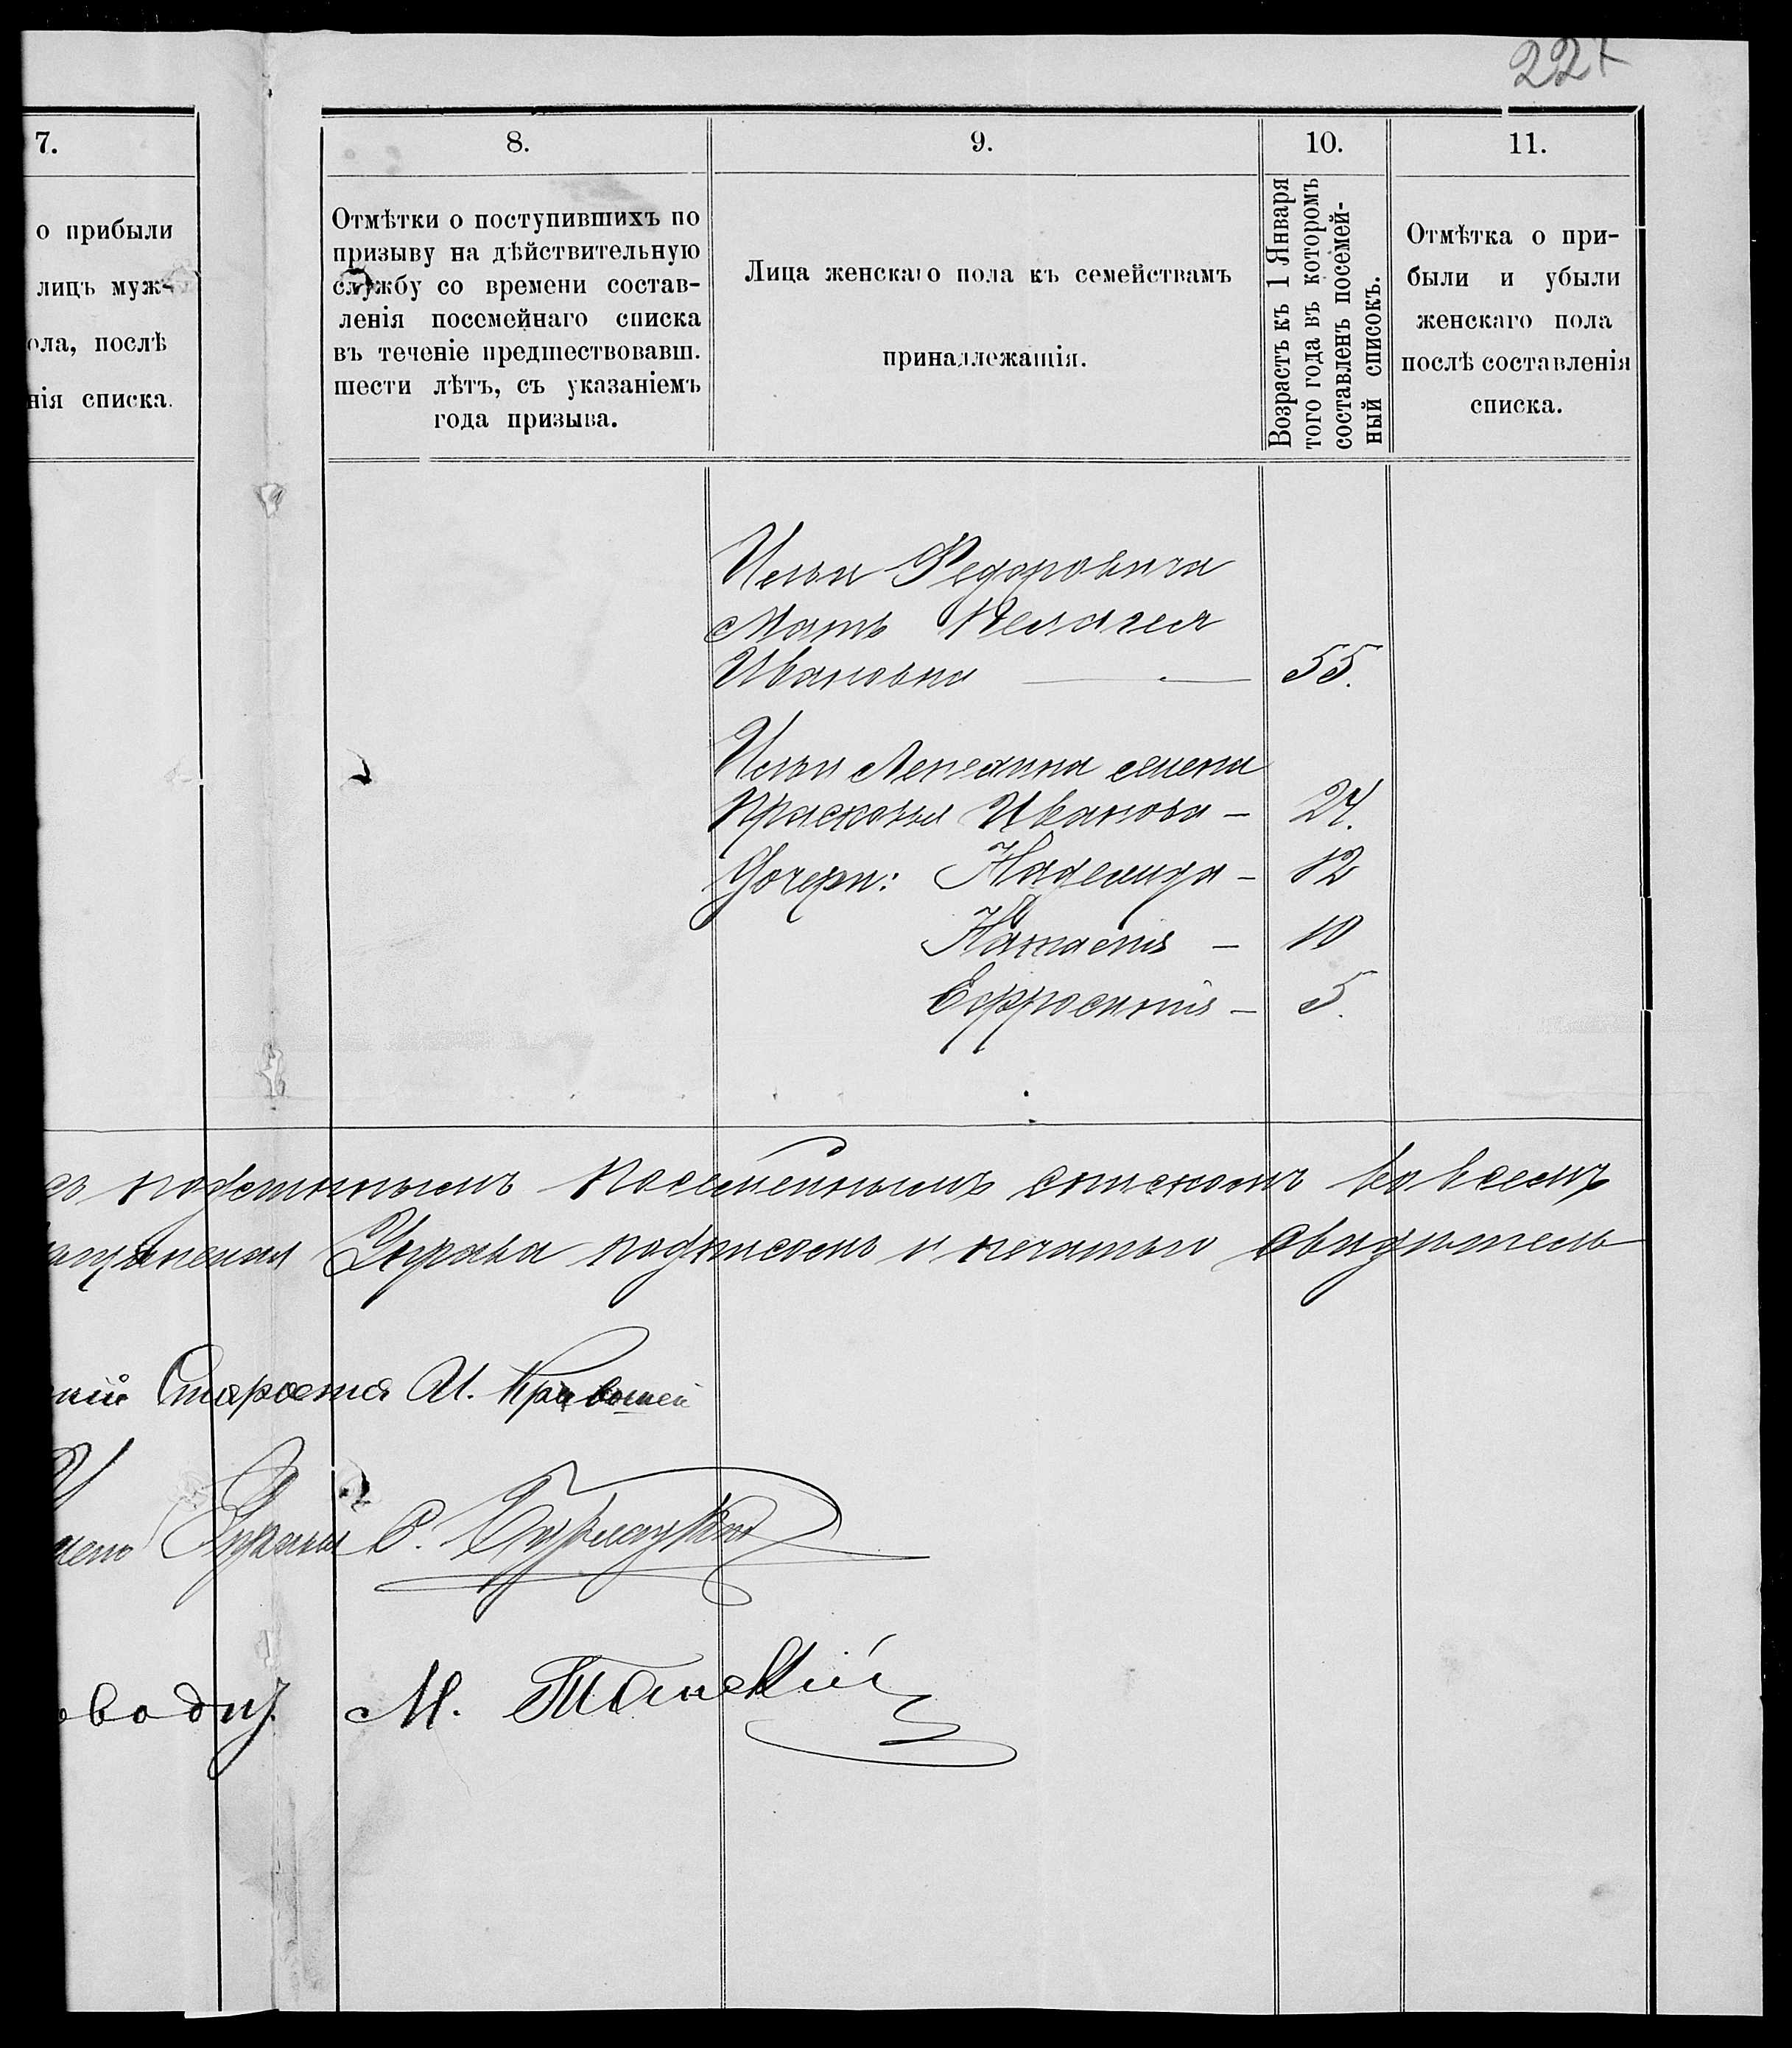 227
7.
о прибыли
лицъ муж-
ола, послѣ
нія списка.
8.
Отмѣтки о поступившихъ по
призыву на дѣйствительную
службу со времени состав-
ленія посемейнаго списка
въ теченіе предшествовавш.
шести лѣтъ, съ указаніемъ
года призыва.
9.
Лица женскаго пола къ семействамъ
принадлежащія.
10.
Возрастъ къ 1 Января
того года въ которомъ
составленъ посемей-
ный списокъ.
11.
Отмѣтка о при-
были и убыли
женскаго пола
послѣ составленія
списка.
Ильи Федоровича
Мать Пелагея
Ивановна — 55.
Ильи жена
Прасковья Иванова — 24.
Дочери: Надежда — 12
Настасія — 10
Ефросинія — 5.
съ подлиннымъ посемейнымъ спискомъ во всемъ
Управа подписомъ и печатью свидѣтель
Староста И.
Управы С.
оводит. М.